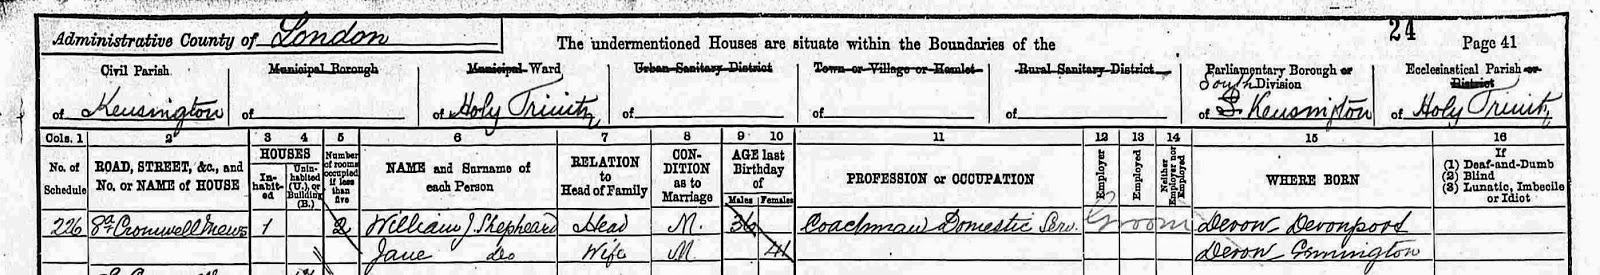 Administrative County of London
The undermentioned Houses are situate within the Boundaries of the
24
Page 41
Civil Parish
Municipal Borough
Municipal Ward
Urban Sanitary District
Town or Village or Hamlet
Rural Sanitary District
Parliamentary Borough or
South Division
Ecclesiastical Parish or
District
of Kensington
of
of Holy Trinity
of
of
of
of S. Kensington
of Holy Trinity
Cols. 1 2 3 4 5 6 7 8 9 10 11 12 13 14 15 16
No. of
Schedule
ROAD, STREET, &c., and
No. or NAME of HOUSE
HOUSES
In-
habit-
ed
Unin-
habited
(U.), or
Building
(B.)
Number
of rooms
occupied
if less
than
five
NAME and Surname of
each Person
RELATION
to
Head of Family
CON-
DITION
as to
Marriage
AGE last
Birthday
of
Males Females
PROFESSION or OCCUPATION
Employer
Employed
Neither
Employer nor
Employed
WHERE BORN
If
(1) Deaf-and-Dumb
(2) Blind
(3) Lunatic, Imbecile
or Idiot
226 8a Cromwell Mews 1 2 William J. Shepheard Head M. 36 Coachman Domestic Serv. Groom Devon Devonport
Jane do Wife M. 41 Devon Ermington